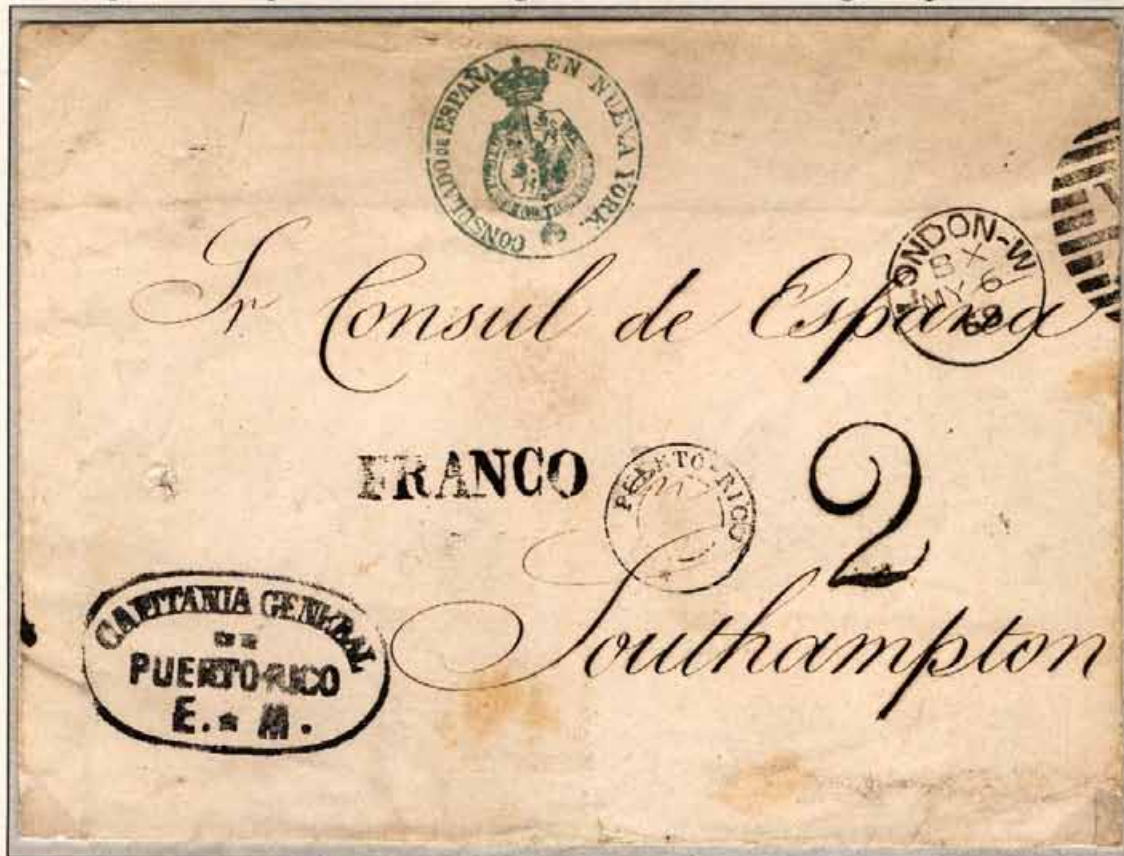 CONSULADO DE ESPAÑA EN NUEVA YORK.
LONDON-W
8 X
MY 6
68
Sr Consul de España
FRANCO
PUERTO-RICO
2
Southampton
CAPITANIA GENERAL
DE
PUERTO-RICO
E. * M.